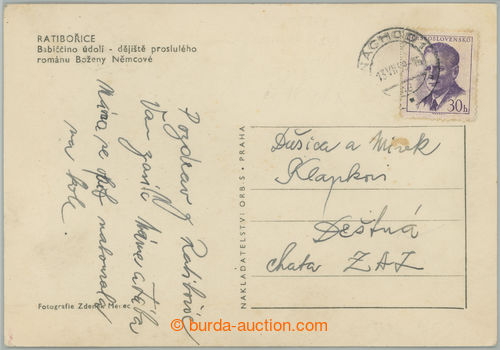 RATIBOŘICE
Babiččino údolí - dějiště proslulého
románu Boženy Němcové
Pozdrav z Ratibořic
Vám zasílá máma a táta
Máma se
na kole.
Fotografie Zdeněk
NAKLADATELSTVÍ ORBIS - PRAHA
NÁCHOD 1
ČESKOSLOVENSKO
30h
Dušica a Mirek
Klapkovi
Deštná
chata ZAZ
burda-auction.com